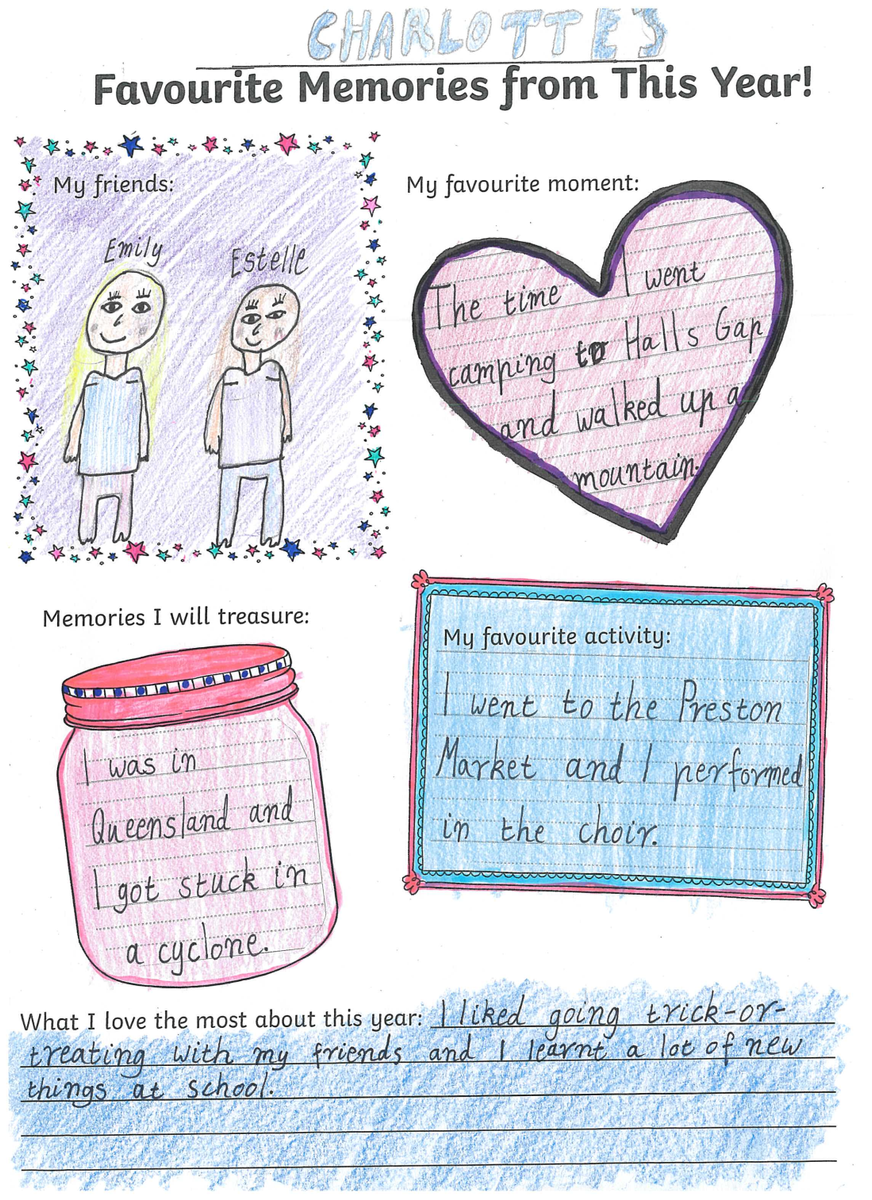 CHARLOTTES
Favourite Memories from This Year!
My friends:
Emily
Estelle
My favourite moment:
The time I went
camping to Halls Gap
and walked up a
mountain.
Memories I will treasure:
I was in
Queensland and
I got stuck in
a cyclone.
My favourite activity:
I went to the Preston
Market and I performed
in the choir.
What I love the most about this year: I liked going trick-or-
treating with my friends and I learnt a lot of new
things at school.